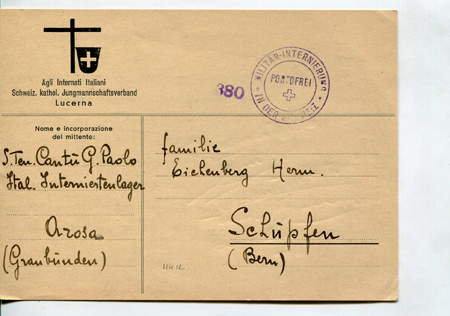 Agli Internati Italiani
Schweiz. kathol. Jungmannschaftsverband
Lucerna
880
MILITÄR-INTERNIERUNG
PORTOFREI
IN DER SCHWEIZ
Nome e incorporazione
del mittente:
S. Ten. Cantù G. Paolo
Ital. Interniertenlager
Arosa
(Graubünden)
familie
Eichenberg Herm.
Schüpfen
(Bern)